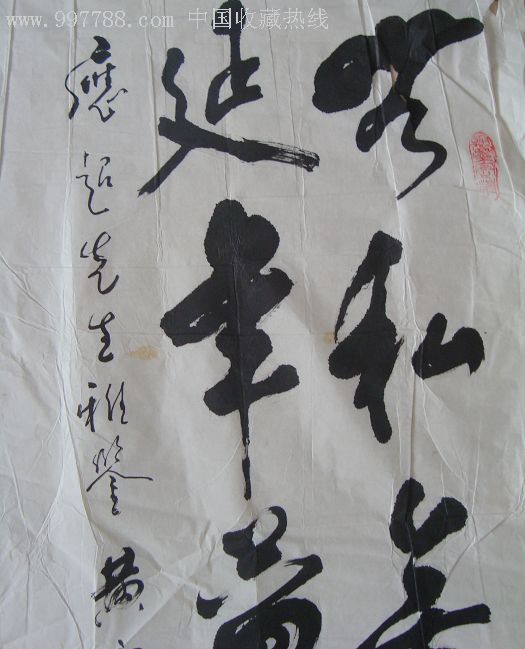 www.997788.com 中国收藏热线
私
延年益
應超先生雅鑒 黄